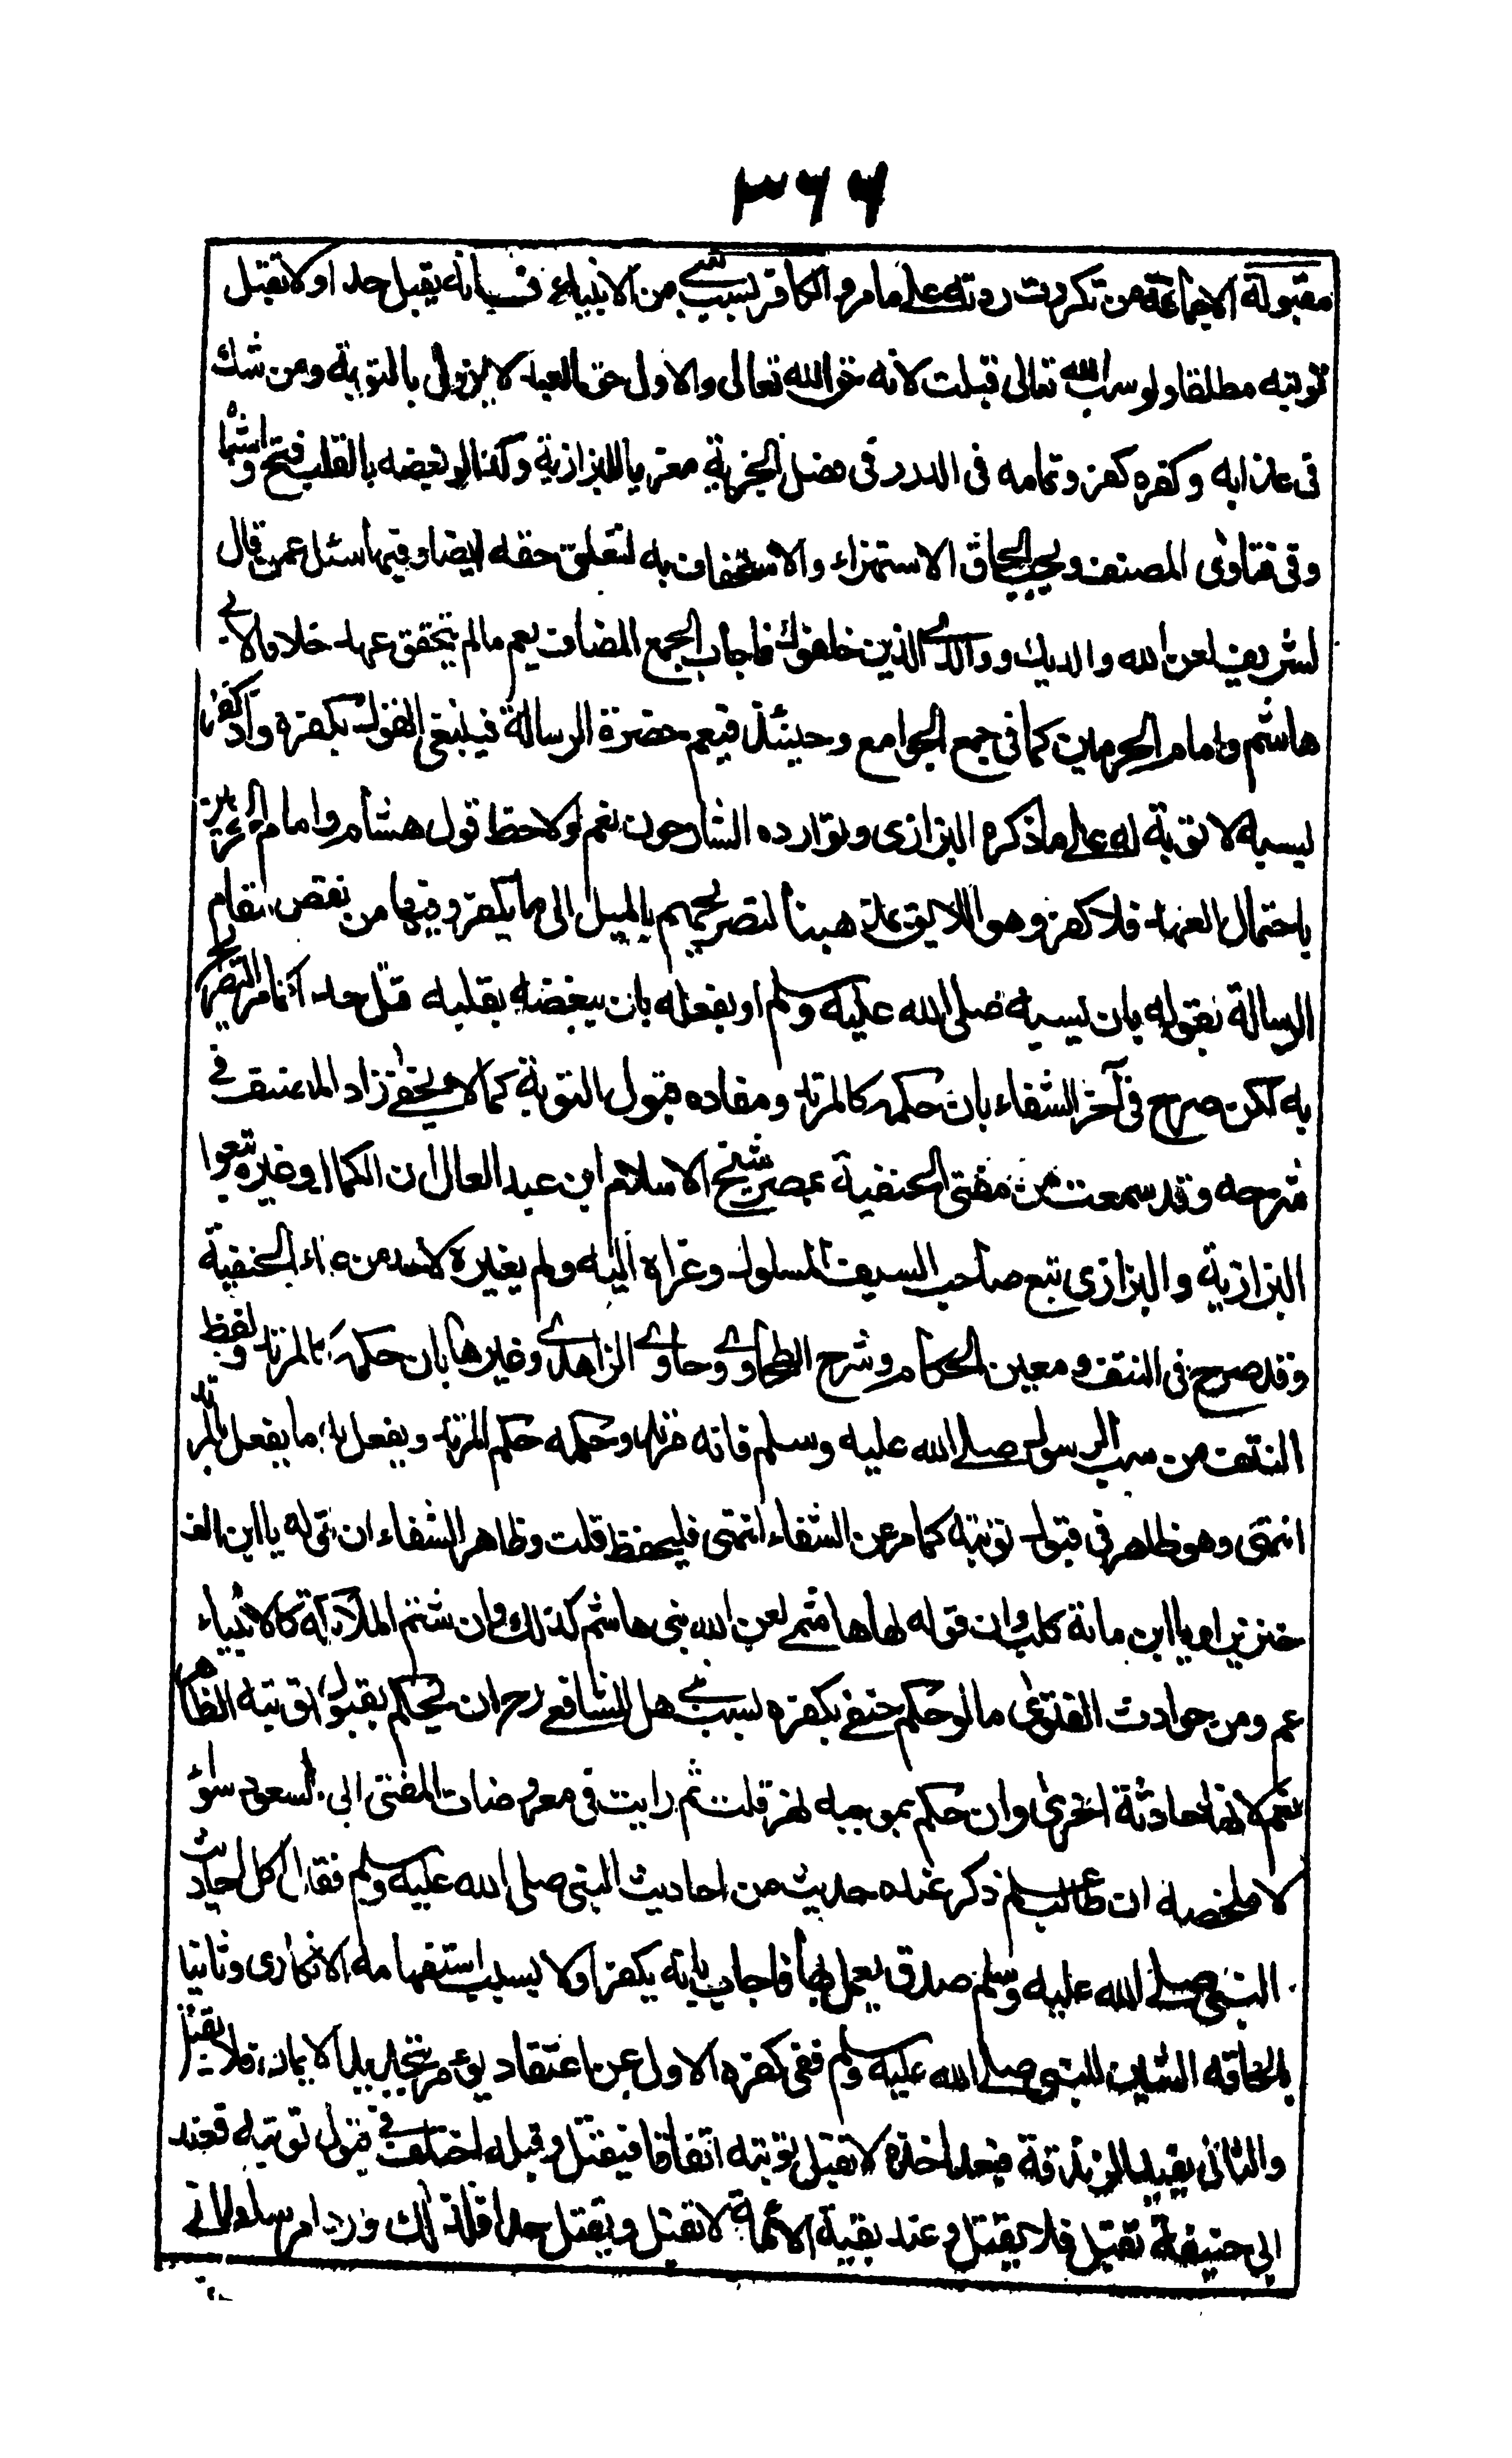 ٣٦٦
مقبولة الا جماعة من تكررت ردته على ما مر و الكافر بسبب نبي من الانبياء فانه يقتل حدا ولا تقبل
توبته مطلقا ولو سب الله تعالى قبلت لانه حق الله تعالى والاول حق العبد لا يزول بالتوبة ومن شك
فى عذابه وكفره كفر وتمامه فى الدرر فى فصل الجزية معزيا للبزازية وكذا لو بغضه بالقلب فتح واشباه
وفى فتاوى المصنف ويجب الحاق الاستهزاء والاستخفاف به لتعلق حقه ايضا وفيها سئل عمن قال
لشريف لعن الله والديك ووالدى الذين خلفوك فاجاب الجمع المضاف يعم مالم يتحقق عهد خلافا لابى
هاشم وامام الحرمين كما فى جمع الجوامع وحينئذ فيعم حضرة الرسالة فينبغى القول بكفره واذ كفر
بسبه لا توبة له على ما ذكره البزازى وتوارده الشارحون نعم لو لاحظ قول هشام وامام الحرمين
باحتمال العهد فلا كفر وهو اللايق بمذهبنا لتصريحهم بالميل الى ما لا يكفر وفيها من نقص مقام
الرسالة بقوله بان يسبه صلى الله عليه وسلم او بفعله بان يبغضه بقلبه قتل حدا كما مر التصريح
به لكن صرح فى آخر الشفاء بان حكمه كالمرتد ومفاده قبول التوبة كما لا يخفى زاد المصنف فى
شرحه وقد سمعت من مفتى الحنفية بمصر شيخ الاسلام ابن عبد العال ان الكمال وغيره تبعوا
البزازية والبزازى تبع صاحب السيف المسلول وعزاه اليه ولم يعزه لاحد من علماء الحنفية
وقد صرح فى النتف ومعين الحكام وشرح الطحاوى وحاوى الزاهدى وغيرها بان حكمه كالمرتد ولفظ
النتف من سب الرسول صلى الله عليه وسلم فانه مرتد وحكمه حكم المرتد ويفعل به ما يفعل بالمرتد
انتهى وهو ظاهر فى قبول توبته كما مر عن الشفاء انتهى فليحفظ قلت وظاهر الشفاء ان قوله يا ابن الف
خنزير او يا ابن مائة كلب وان قوله لهاشمى لعن الله بنى هاشم كذلك وان شتم الملائكة كالانبياء
عم ومن حوادث الفتوى ما لو حكم حنفى بكفره بسب نبى هل للشافعى رح ان يحكم بقبول توبته الظاهر
نعم لانها حادثة اخرى وان حكم بموجبه نهر قلت ثم رايت فى معروضات المفتى ابى السعود سؤ
لا ملخصه ان طالب علم ذكر عنده حديث من احاديث النبى صلى الله عليه وسلم فقال اكل احاديث
النبى صلى الله عليه وسلم صدق يعمل بها فاجاب بانه يكفر اولا بسبب استفهامه الانكارى وثانيا
بالحاقه الشين للنبى صلى الله عليه وسلم ففى كفره الاول عن اعتقاد يؤمر بتجديد الايمان فلا يقتل
والثانى يفيد الزندقة فبعد اخذه لا تقبل توبته اتفاقا فيقتل وقبله اختلف فى قبول توبته فعند
ابى حنيفة تقبل فلا يقتل وعند بقية الائمة لا تقبل ويقتل حدا فلذلك ورد امر سلطانى